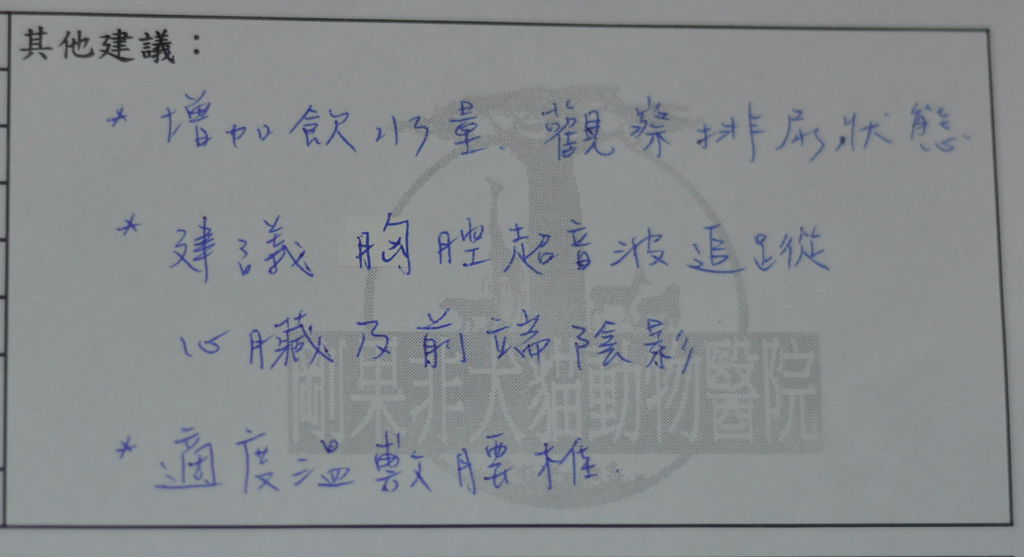 其他建議：
* 增加飲水量、觀察排尿狀態
* 建議胸腔超音波追蹤
心臟及前端陰影
剛果非犬貓動物醫院
* 適度溫敷腰椎.